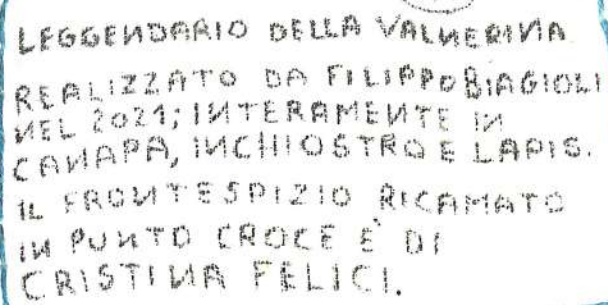 LEGGENDARIO DELLA VALNERINA
REALIZZATO DA FILIPPO BIAGIOLI
NEL 2021; INTERAMENTE IN
CANAPA, INCHIOSTRO E LAPIS.
IL FRONTESPIZIO RICAMATO
IN PUNTO CROCE E' DI
CRISTINA FELICI.